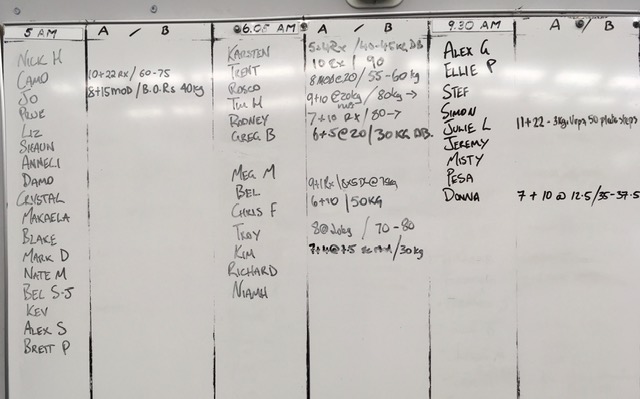 5 AM A / B
NICK H
CAMO 10+22 RX / 60-75
JO 8+15 MOD / B.O.Rs 40kg
LIZ
SHAUN
ANNELI
DAMO
CRYSTAL
MAKAELA
BLAKE
MARK D
NATE M
BEL S-J
KEV
ALEX S
BRETT P
6.05 AM A / B
KARSTEN
TRENT 10 RX / 90
ROSCO 8 MOD @ 20 / 55-60kg
TIM H 9+10 @ 20kg / 80kg →
RODNEY 7+10 RX / 80 →
GREG B 6+5 @ 20 / 30KG DB.
MEG M
BEL 6+10 / 50KG
CHRIS F
TROY 8 @ 20kg / 70-80
KIM / 30kg
RICHARD
NIAMH
9.30 AM A / B
ALEX G
ELLIE P
STEF
SIMON
JULIE L 11+22 - 3kg 50 plate steps
JEREMY
MISTY
PESA
DONNA 7+10 @ 12.5 / 35-37.5